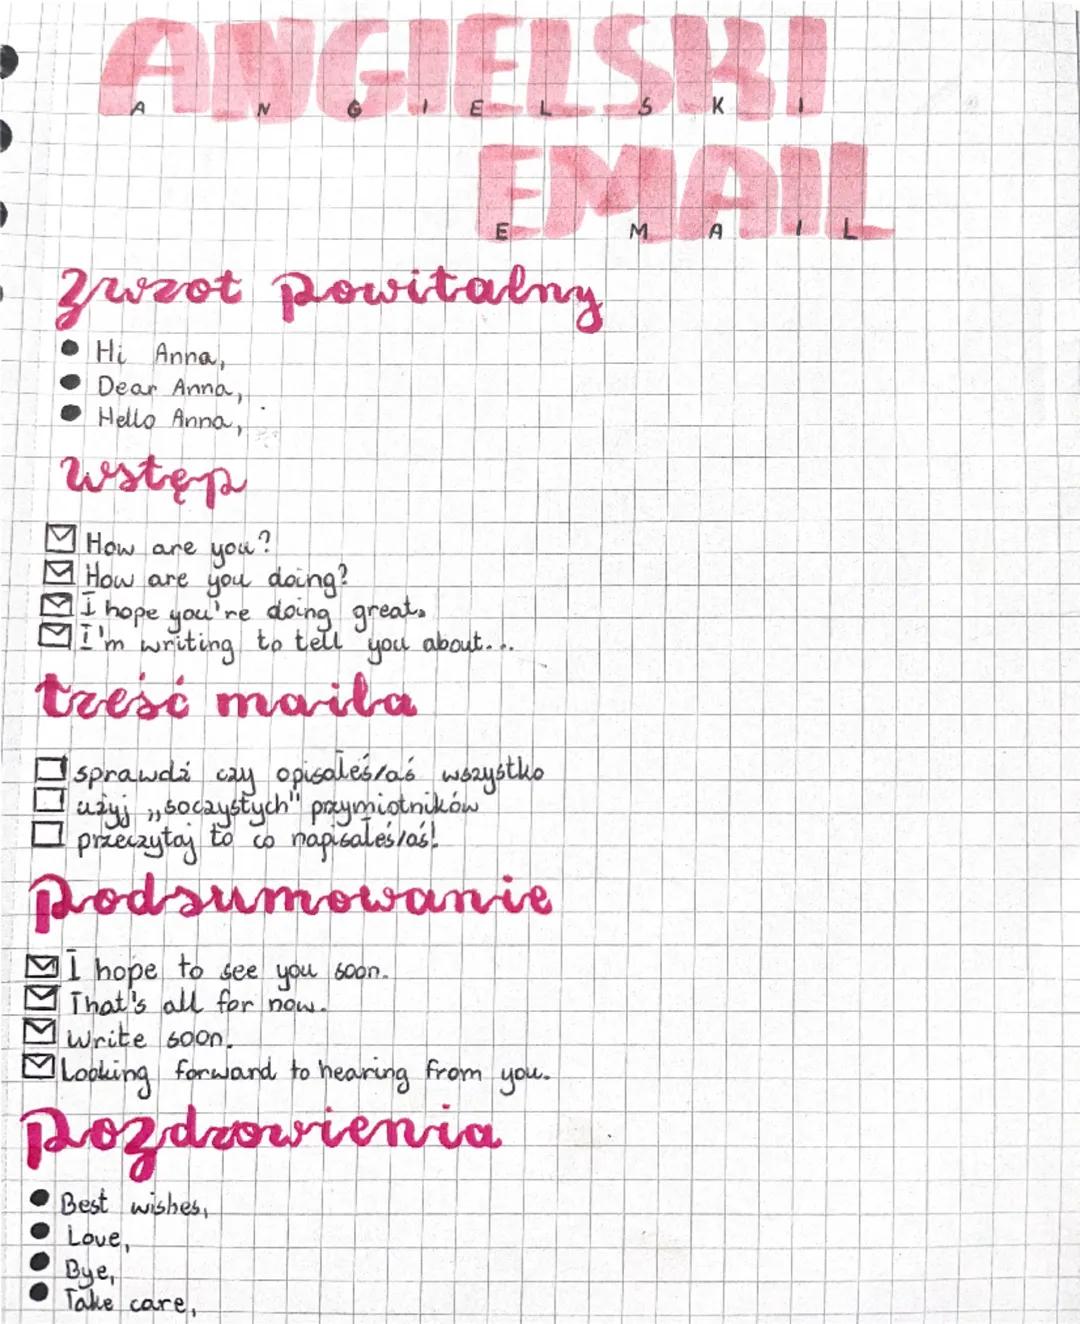 ANGIELSKI
A N G I E L S K I
EMAIL
E M A I L
zwrot powitalny
Hi Anna,
Dear Anna,
Hello Anna,
wstęp
How are you?
How are you doing?
I hope you're doing great.
I'm writing to tell you about...
treść maila
sprawdź czy opisałeś/aś wszystko
użyj „soczystych" przymiotników
przeczytaj to co napisałeś/aś!
podsumowanie
I hope to see you soon.
That's all for now.
Write soon.
Looking forward to hearing from you.
pozdrowienia
Best wishes,
Love,
Bye,
Take care,